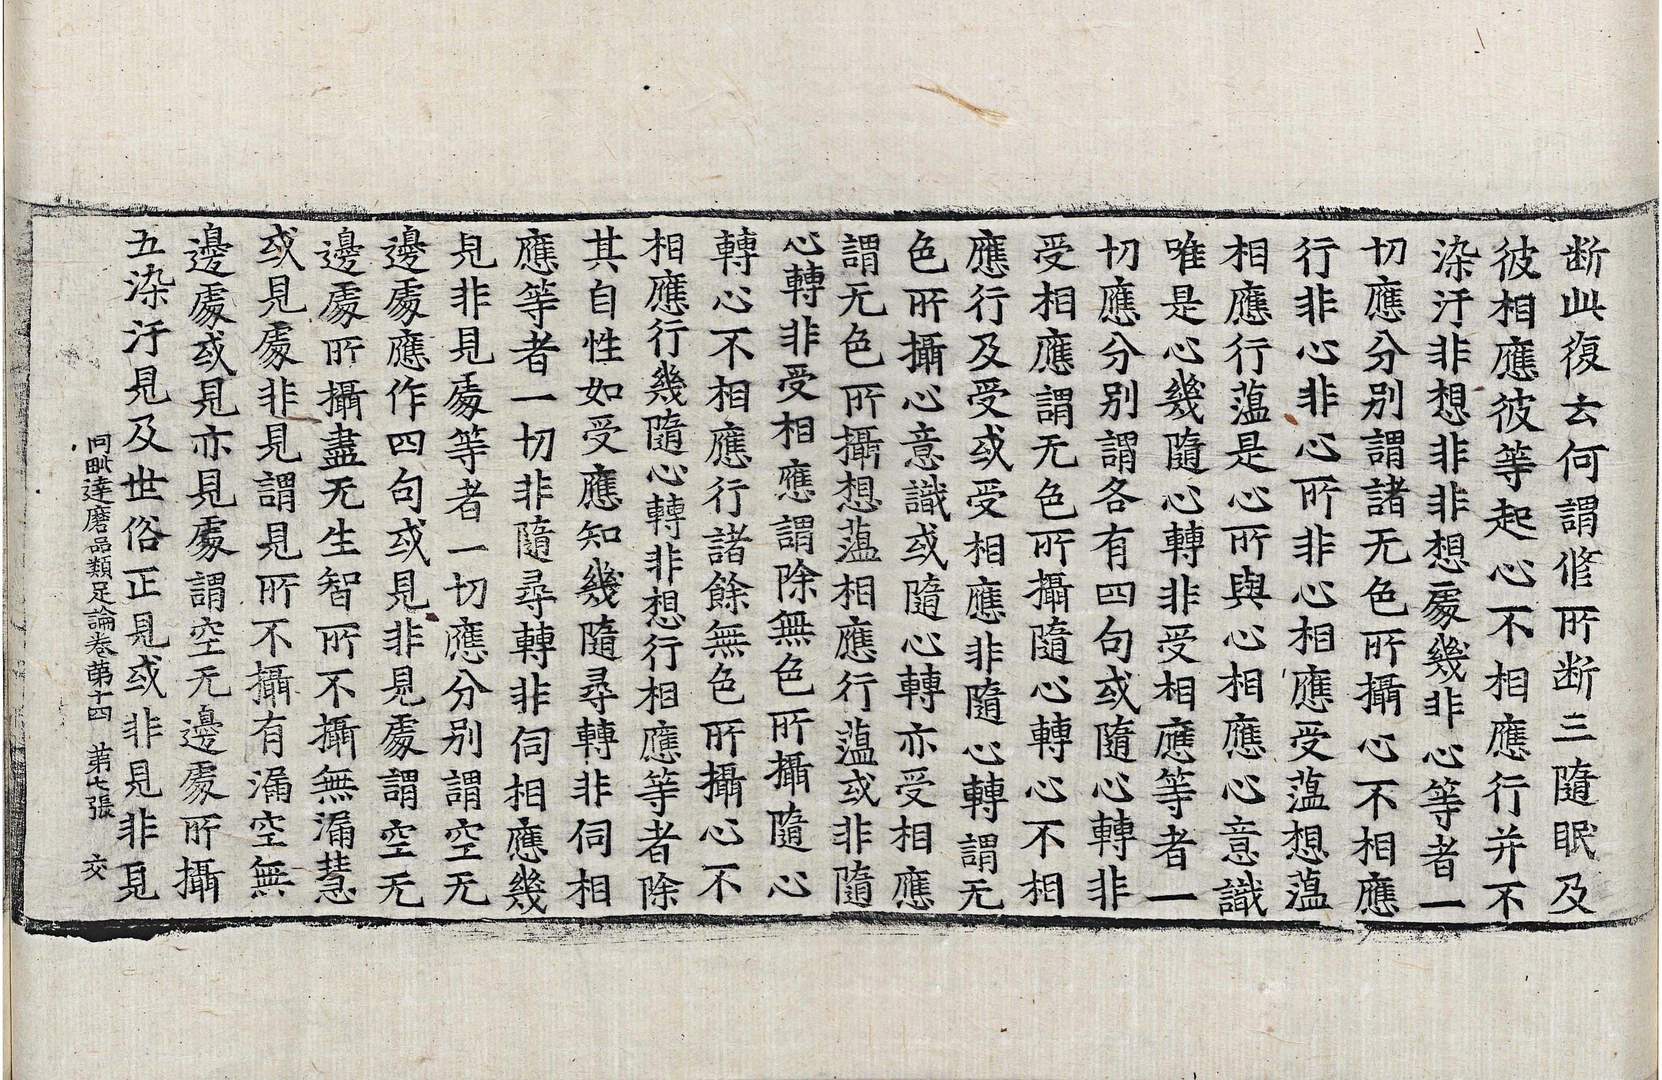 断此復云何謂修所断三隨眠及
彼相應彼等起心不相應行并不
染汙非想非非想處幾非心等者一
切應分別謂諸无色所攝心不相應
行非心非心所非心相應受薀想薀
相應行薀是心所與心相應心意識
唯是心幾隨心轉非受相應等者一
切應分別謂各有四句或隨心轉非
受相應謂无色所攝隨心轉心不相
應行及受或受相應非隨心轉謂无
色所攝心意識或隨心轉亦受相應
謂无色所攝想薀相應行薀或非隨
心轉非受相應謂除無色所攝隨心
轉心不相應行諸餘無色所攝心不
相應行幾隨心轉非想行相應等者除
其自性如受應知幾隨尋轉非伺相
應等者一切非隨尋轉非伺相應幾
見非見處等者一切應分別謂空无
邊處應作四句或見非見處謂空无
邊處所攝盡无生智所不攝無漏慧
或見處非見謂見所不攝有漏空無
邊處或見亦見處謂空无邊處所攝
五染汙見及世俗正見或非見非見
阿毗達磨品類足論卷苐十四 苐七張 交